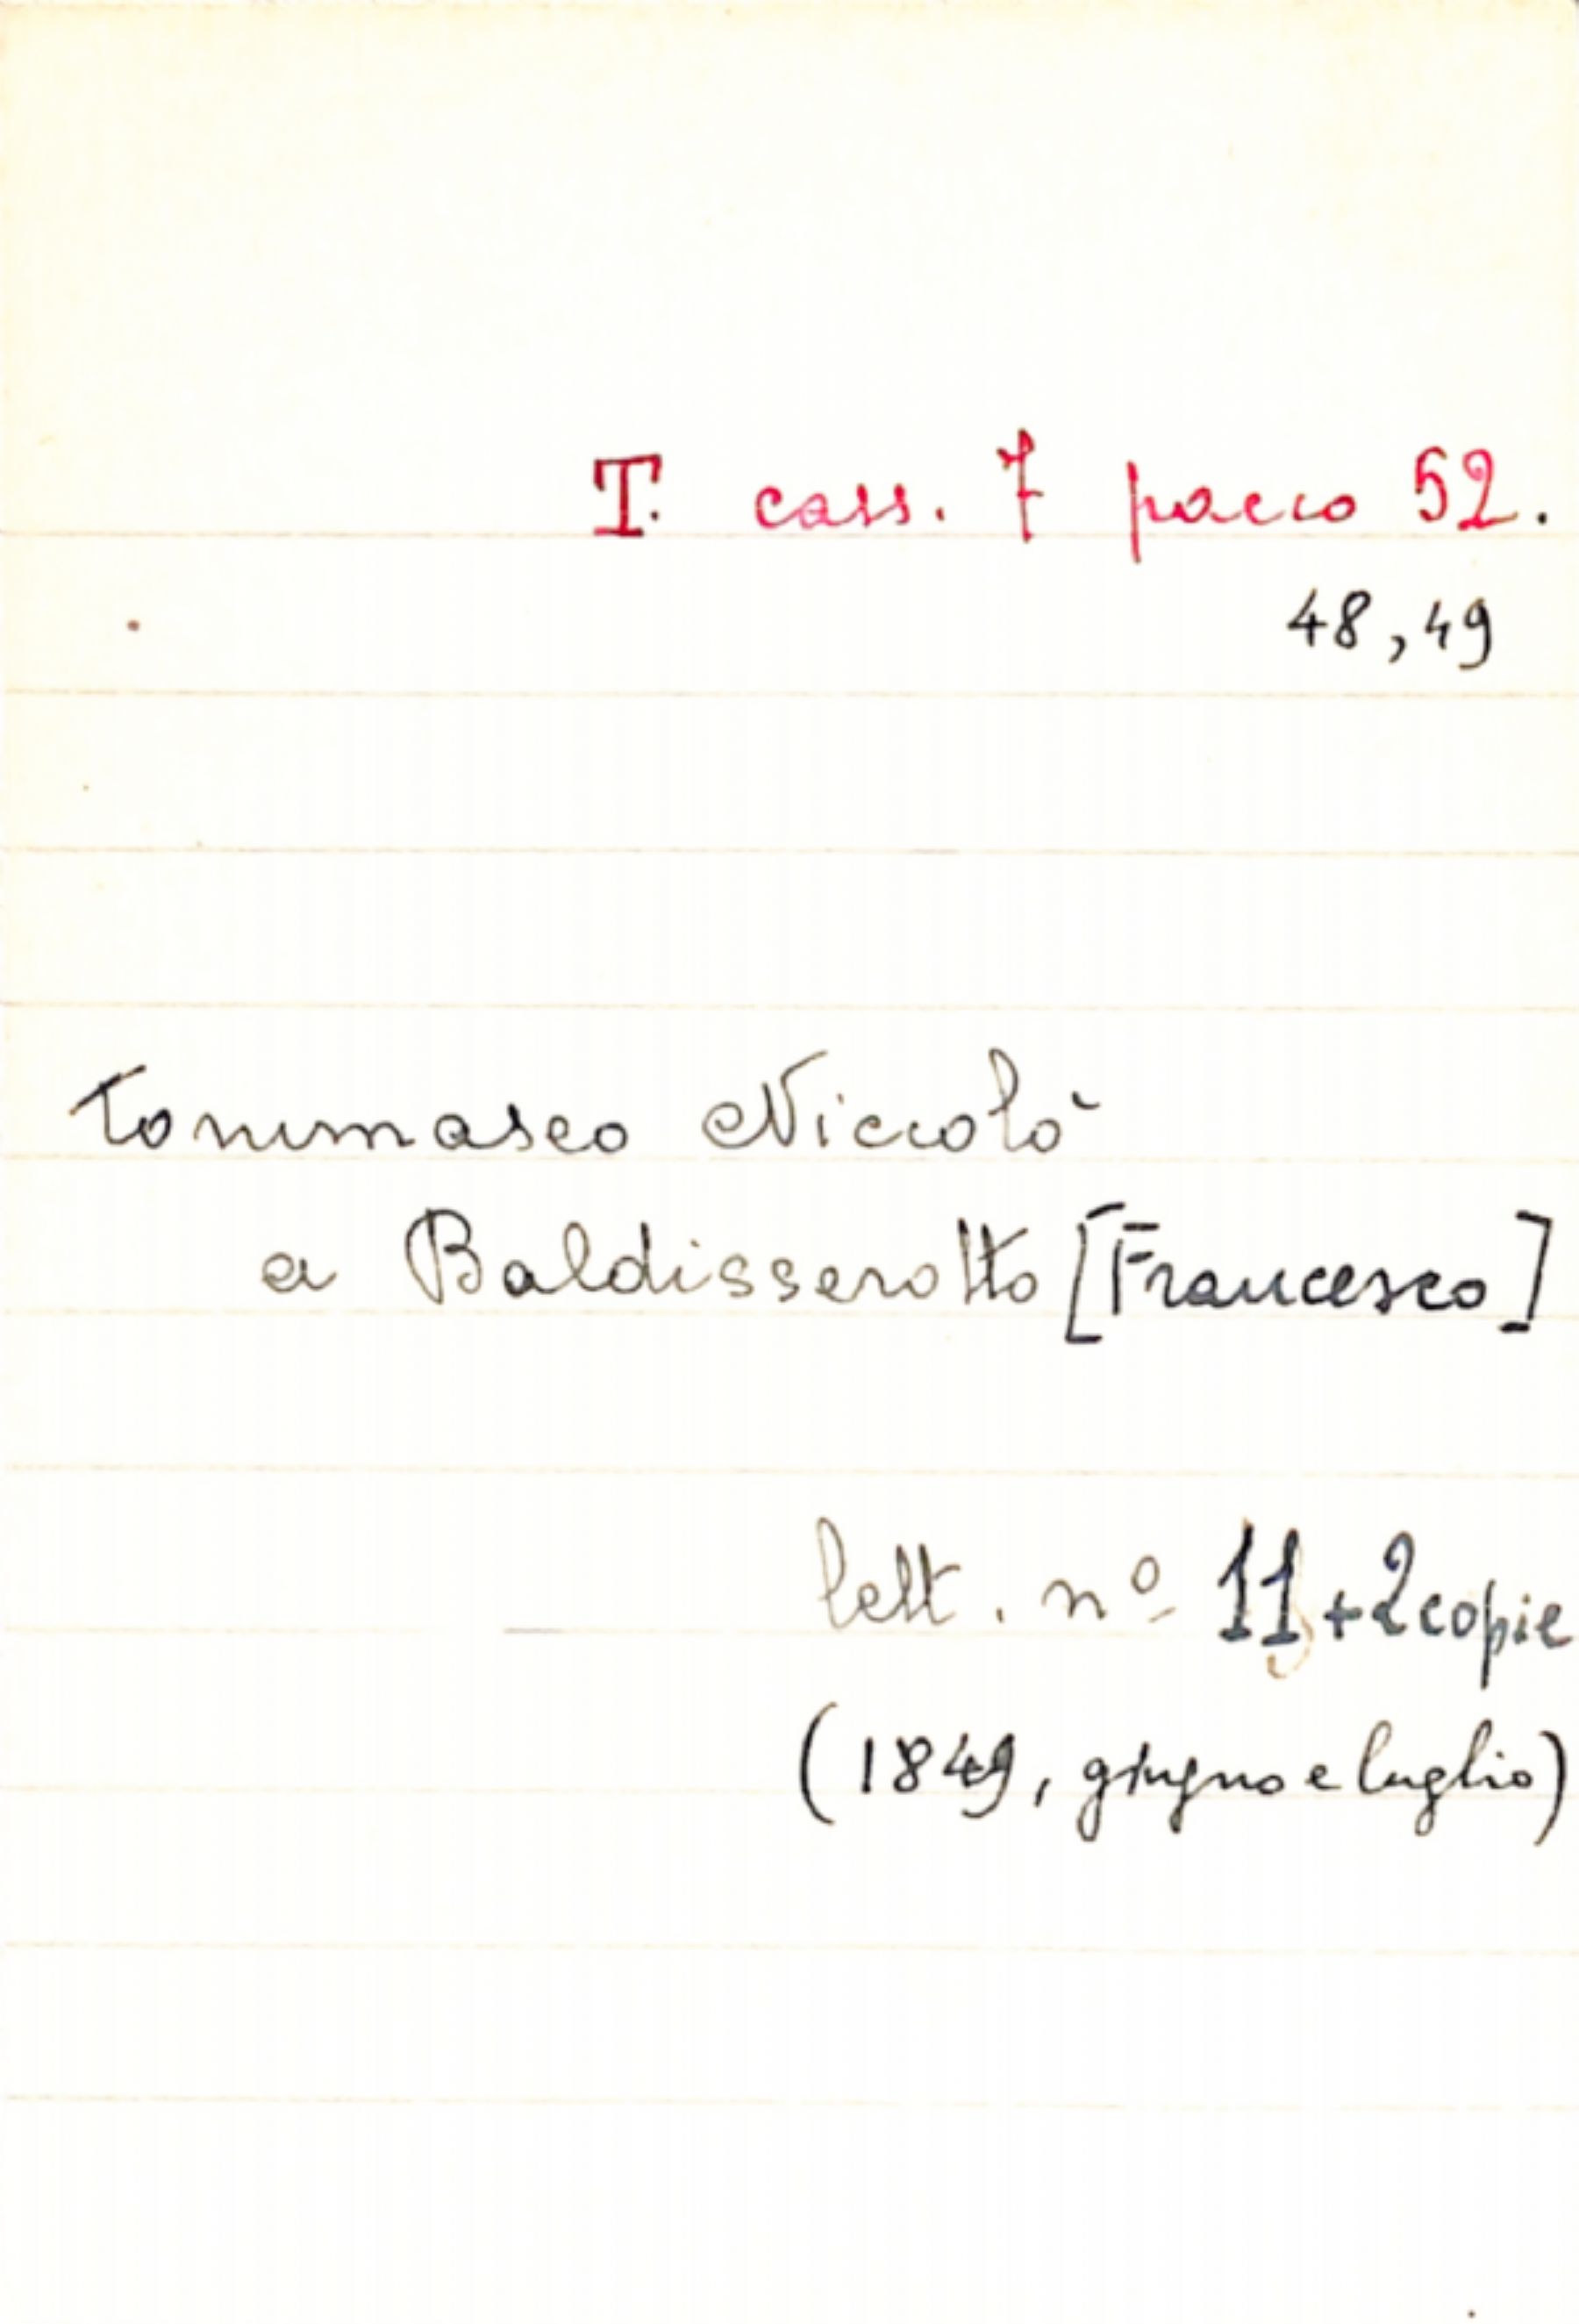 T. cass. 7 pacco 52.
48, 49
Tommaseo Niccolò
a Baldisserotto [Francesco]
lett. nº 11 + 2 copie
(1849, giugno e luglio)